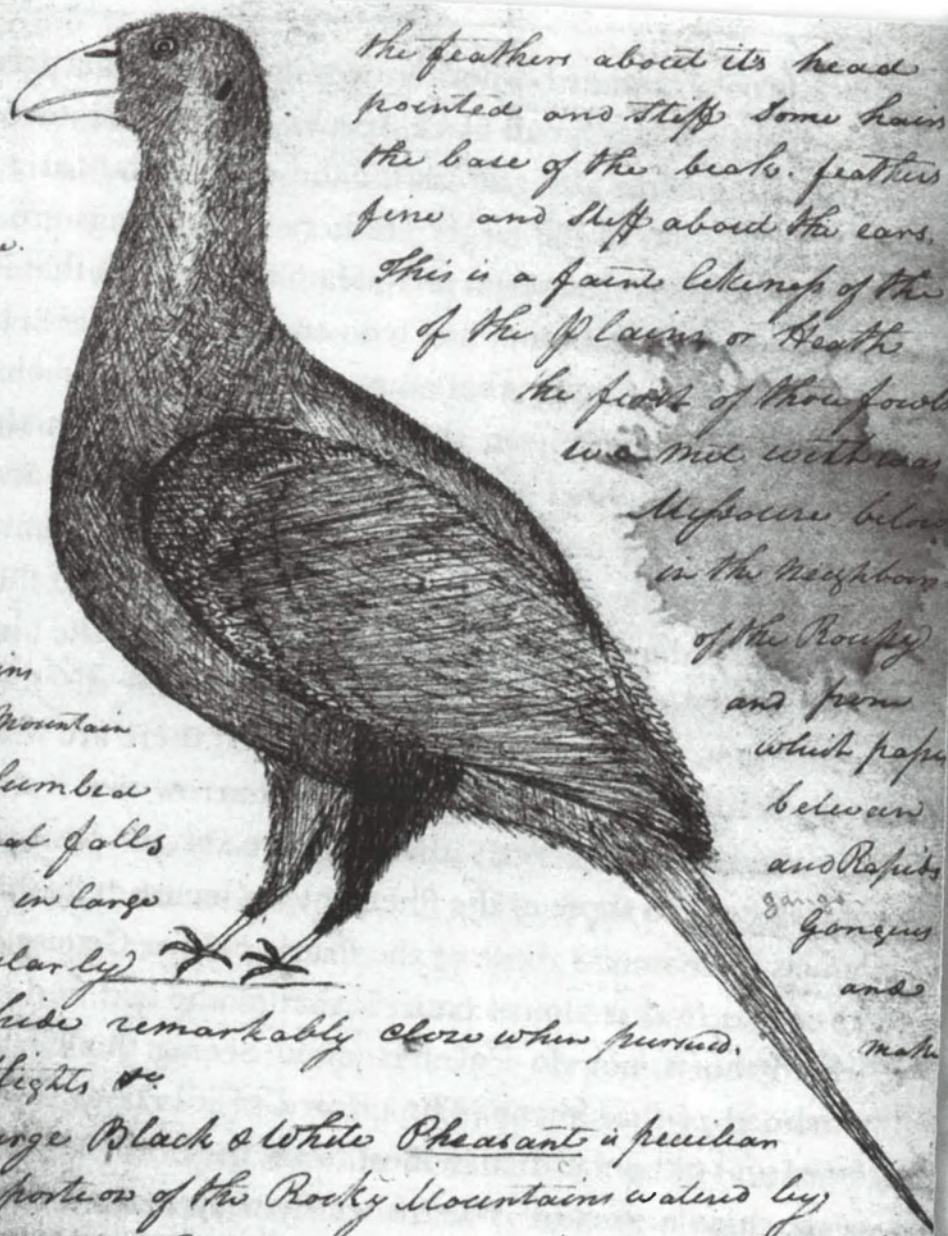 the feathers about its head
pointed and stiff Some hairs
the base of the beak. feathers
fine and stiff about the ears,
This is a faint likeness of the
of the Plains or Heath
the first of those fowls
we met with was
Missoure below
in the neighbour
of the Rocky
and from
ins
Mountain
which pass
lumbia
between
al falls
and Rapids
in large
gangs
Gangues
larly
and
hide remarkably close when pursued.
make
flights &c
arge Black & White Pheasant is peculiar
portion of the Rocky Mountains watered by